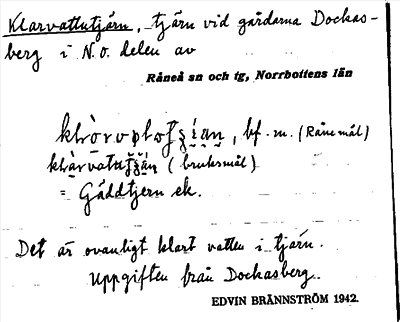 Klarvattutjärn, tjärn vid gårdarna Dockas-
berg i N.o. delen av
Råneå sn och tg, Norrbottens län
bf. m. (Råne mål)
(bruksmål)
= Gäddtjern ek.
Det är ovanligt klart vatten i tjärn.
Uppgiften från Dockasberg.
EDVIN BRÄNNSTRÖM 1942.